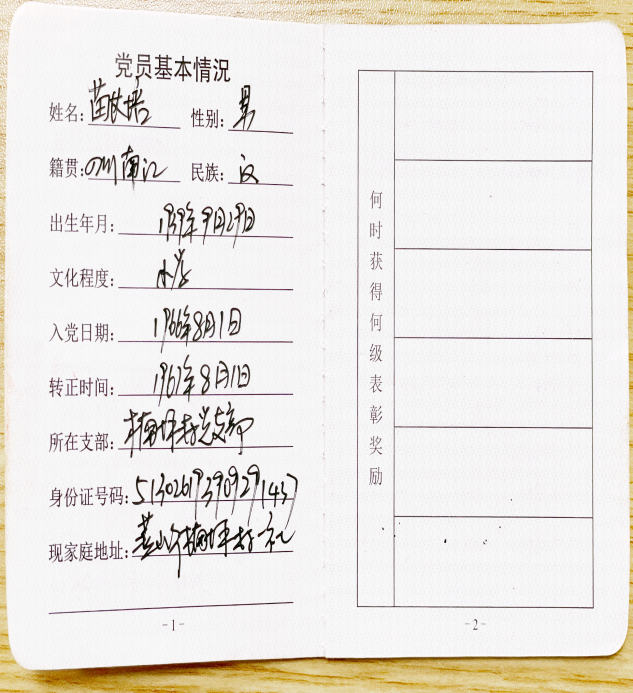 党员基本情况
姓名:苗 性别:男
籍贯:四川南江 民族:汉
出生年月:1939年9月29日
文化程度:小学
入党日期:1966年8月1日
转正时间:1967年8月1日
所在支部:楠坪村党支部
身份证号码:513026193909291437
现家庭地址:楠坪村一社
-1-
何时获得何级表彰奖励
-2-